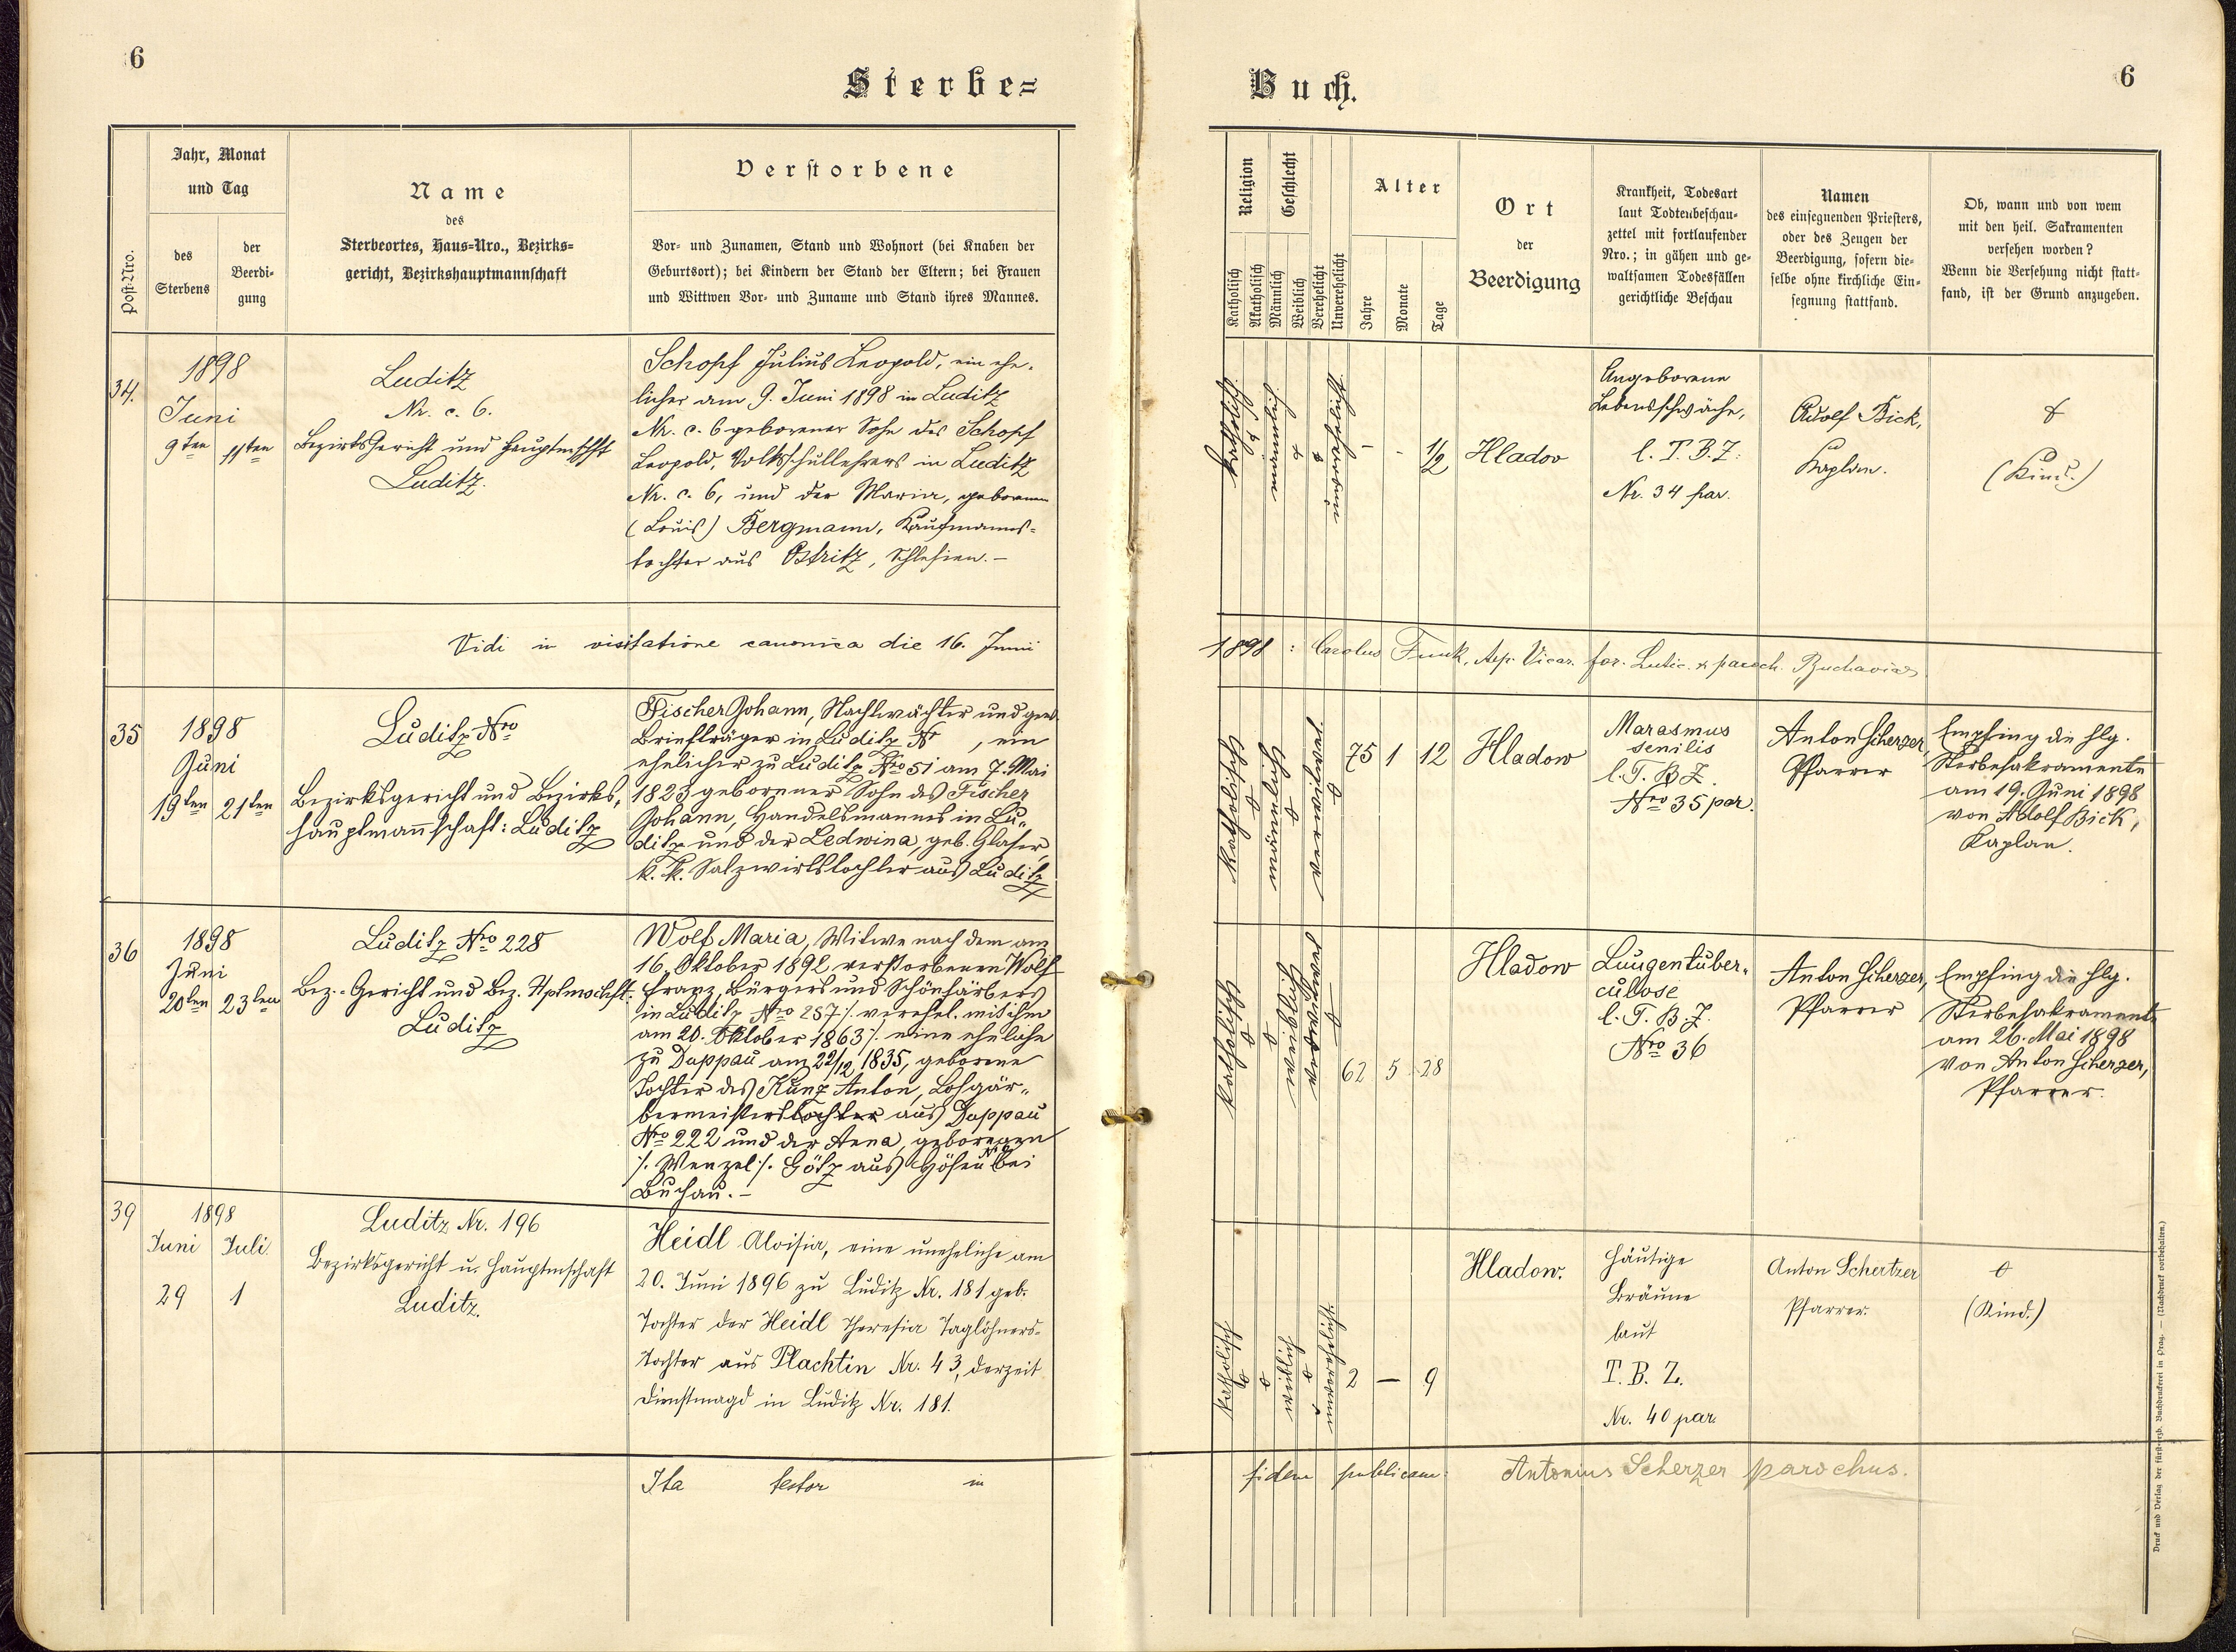 6
Sterbe=
Post-Nro.
Jahr, Monat
und Tag
des
Sterbens
der
Beerdi-
gung
Name
des
Sterbeortes, Haus=Nro., Bezirks=
gericht, Bezirkshauptmannschaft
Verstorbene
Vor- und Zunamen, Stand und Wohnort (bei Knaben der
Geburtsort); bei Kindern der Stand der Eltern; bei Frauen
und Wittwen Vor- und Zuname und Stand ihres Mannes.
34.
1898
Juni
9ten 11ten
Luditz
Nr. c. 6.
Bezirks Gericht und Hauptmschft
Luditz.
Schopf Julius Leopold, ein ehe-
licher am 9. Juni 1898 in Luditz
Nr. c. 6 geborener Sohn des Schopf
Leopold, Volksschullehrers in Luditz
Nr. c. 6, und der Maria, geborenen
(Louis) Bergmann, Kaufmanns-
tochter aus Ostritz, Schlesien.-
Vidi in visitatione canonica die 16. Junii
35
1898
Juni
19ten 21ten
Luditz Nro
Bezirksgericht und Bezirks,
hauptmannschaft: Luditz
Fischer Johann, Nachtwächter und gew.
Briefträger in Luditz N , ein
ehelicher zu Luditz Nro 51 am 7. Mai
1823 geborener Sohn des Fischer
Johann, Handelsmannes in Lu-
ditz und der Ledwina, geb. Glaser,
k. k. Salzwirtstochter aus Luditz
36
1898
Juni
20ten 23ten
Luditz Nro 228
Bez.-Gericht und Bez. Hptmschft.
Luditz
Wolf Maria, Witwe nach dem am
16. Oktober 1892 verstorbenen Wolf
Franz, Bürgers und Schönfärbers
in Luditz Nro 257 /. verehel. mit ihm
am 20. Oktober 1863 /. eine eheliche
zu Duppau am 22/12 1835, geborene
Tochter des Kunz Anton, Lohgär-
bermeisters tochter aus Duppau
Nro 222 und der Anna, geborenen
/. Wenzel /. Götz aus Höfen bei
Buchau.-
39
1898
Juni Juli
29 1
Luditz Nr. 196
Bezirksgericht u. Hauptmschaft
Luditz.
Heidl Aloisia, eine uneheliche am
20. Juni 1896 zu Luditz Nr. 181 geb.
Tochter der Heidl Theresia Taglöhners-
tochter aus Plachtin Nr. 43, derzeit
Dienstmagd in Luditz Nr. 181.
Ita testor in
6
Buch.
Religion
Geschlecht
Katholisch
Akatholisch
Männlich
Weiblich
Verehelicht
Unverehelicht
Alter
Jahre
Monate
Tage
Ort
der
Beerdigung
Krankheit, Todesart
laut Todtenbeschau-
zettel mit fortlaufender
Nro.; in gähen und ge-
waltsamen Todesfällen
gerichtliche Beschau
Namen
des einsegnenden Priesters,
oder des Zeugen der
Beerdigung, sofern die-
selbe ohne kirchliche Ein-
segnung stattfand.
Ob, wann und von wem
mit den heil. Sakramenten
versehen worden?
Wenn die Versehung nicht statt-
fand, ist der Grund anzugeben.
katholisch
männlich
unverehelicht
- - 1/2
Hladov
Angeborene
Lebensschwäche,
l. T. B. Z.
Nr. 34 par.
Adolf Bick,
Kaplan.
(Kind.)
1898: Carolus Funk, Aep. Vicar. for. Lutic. & paroch. Buchaviae
katholisch
männlich
verwitwet.
75 1 12
Hladow
Marasmus
senilis
l. T. B Z.
Nro 35 par.
Anton Scherzer,
Pfarrer
Empfing die hlg.
Sterbesakramente
am 19. Juni 1898
von Adolf Bick,
Kaplan.
katholisch
weiblich
verwitwet
62 5 28
Hladow
Lungentuber-
culose
l. T. B. Z.
Nro 36
Anton Scherzer,
Pfarrer
Empfing die hlg.
Sterbesakramente
am 26. Mai 1898
von Anton Scherzer,
Pfarrer.
katholisch
weiblich
unverehelicht
2 — 9
Hladow.
Häutige
Bräune
laut
T. B. Z.
Nr. 40 par.
Anton Schertzer
Pfarrer.
(Kind.)
fidem publicam: Antonius Scherzer parochus.
Druck und Verlag der fürst-erzb. Buchdruckerei in Prag. — (Nachdruck vorbehalten.)